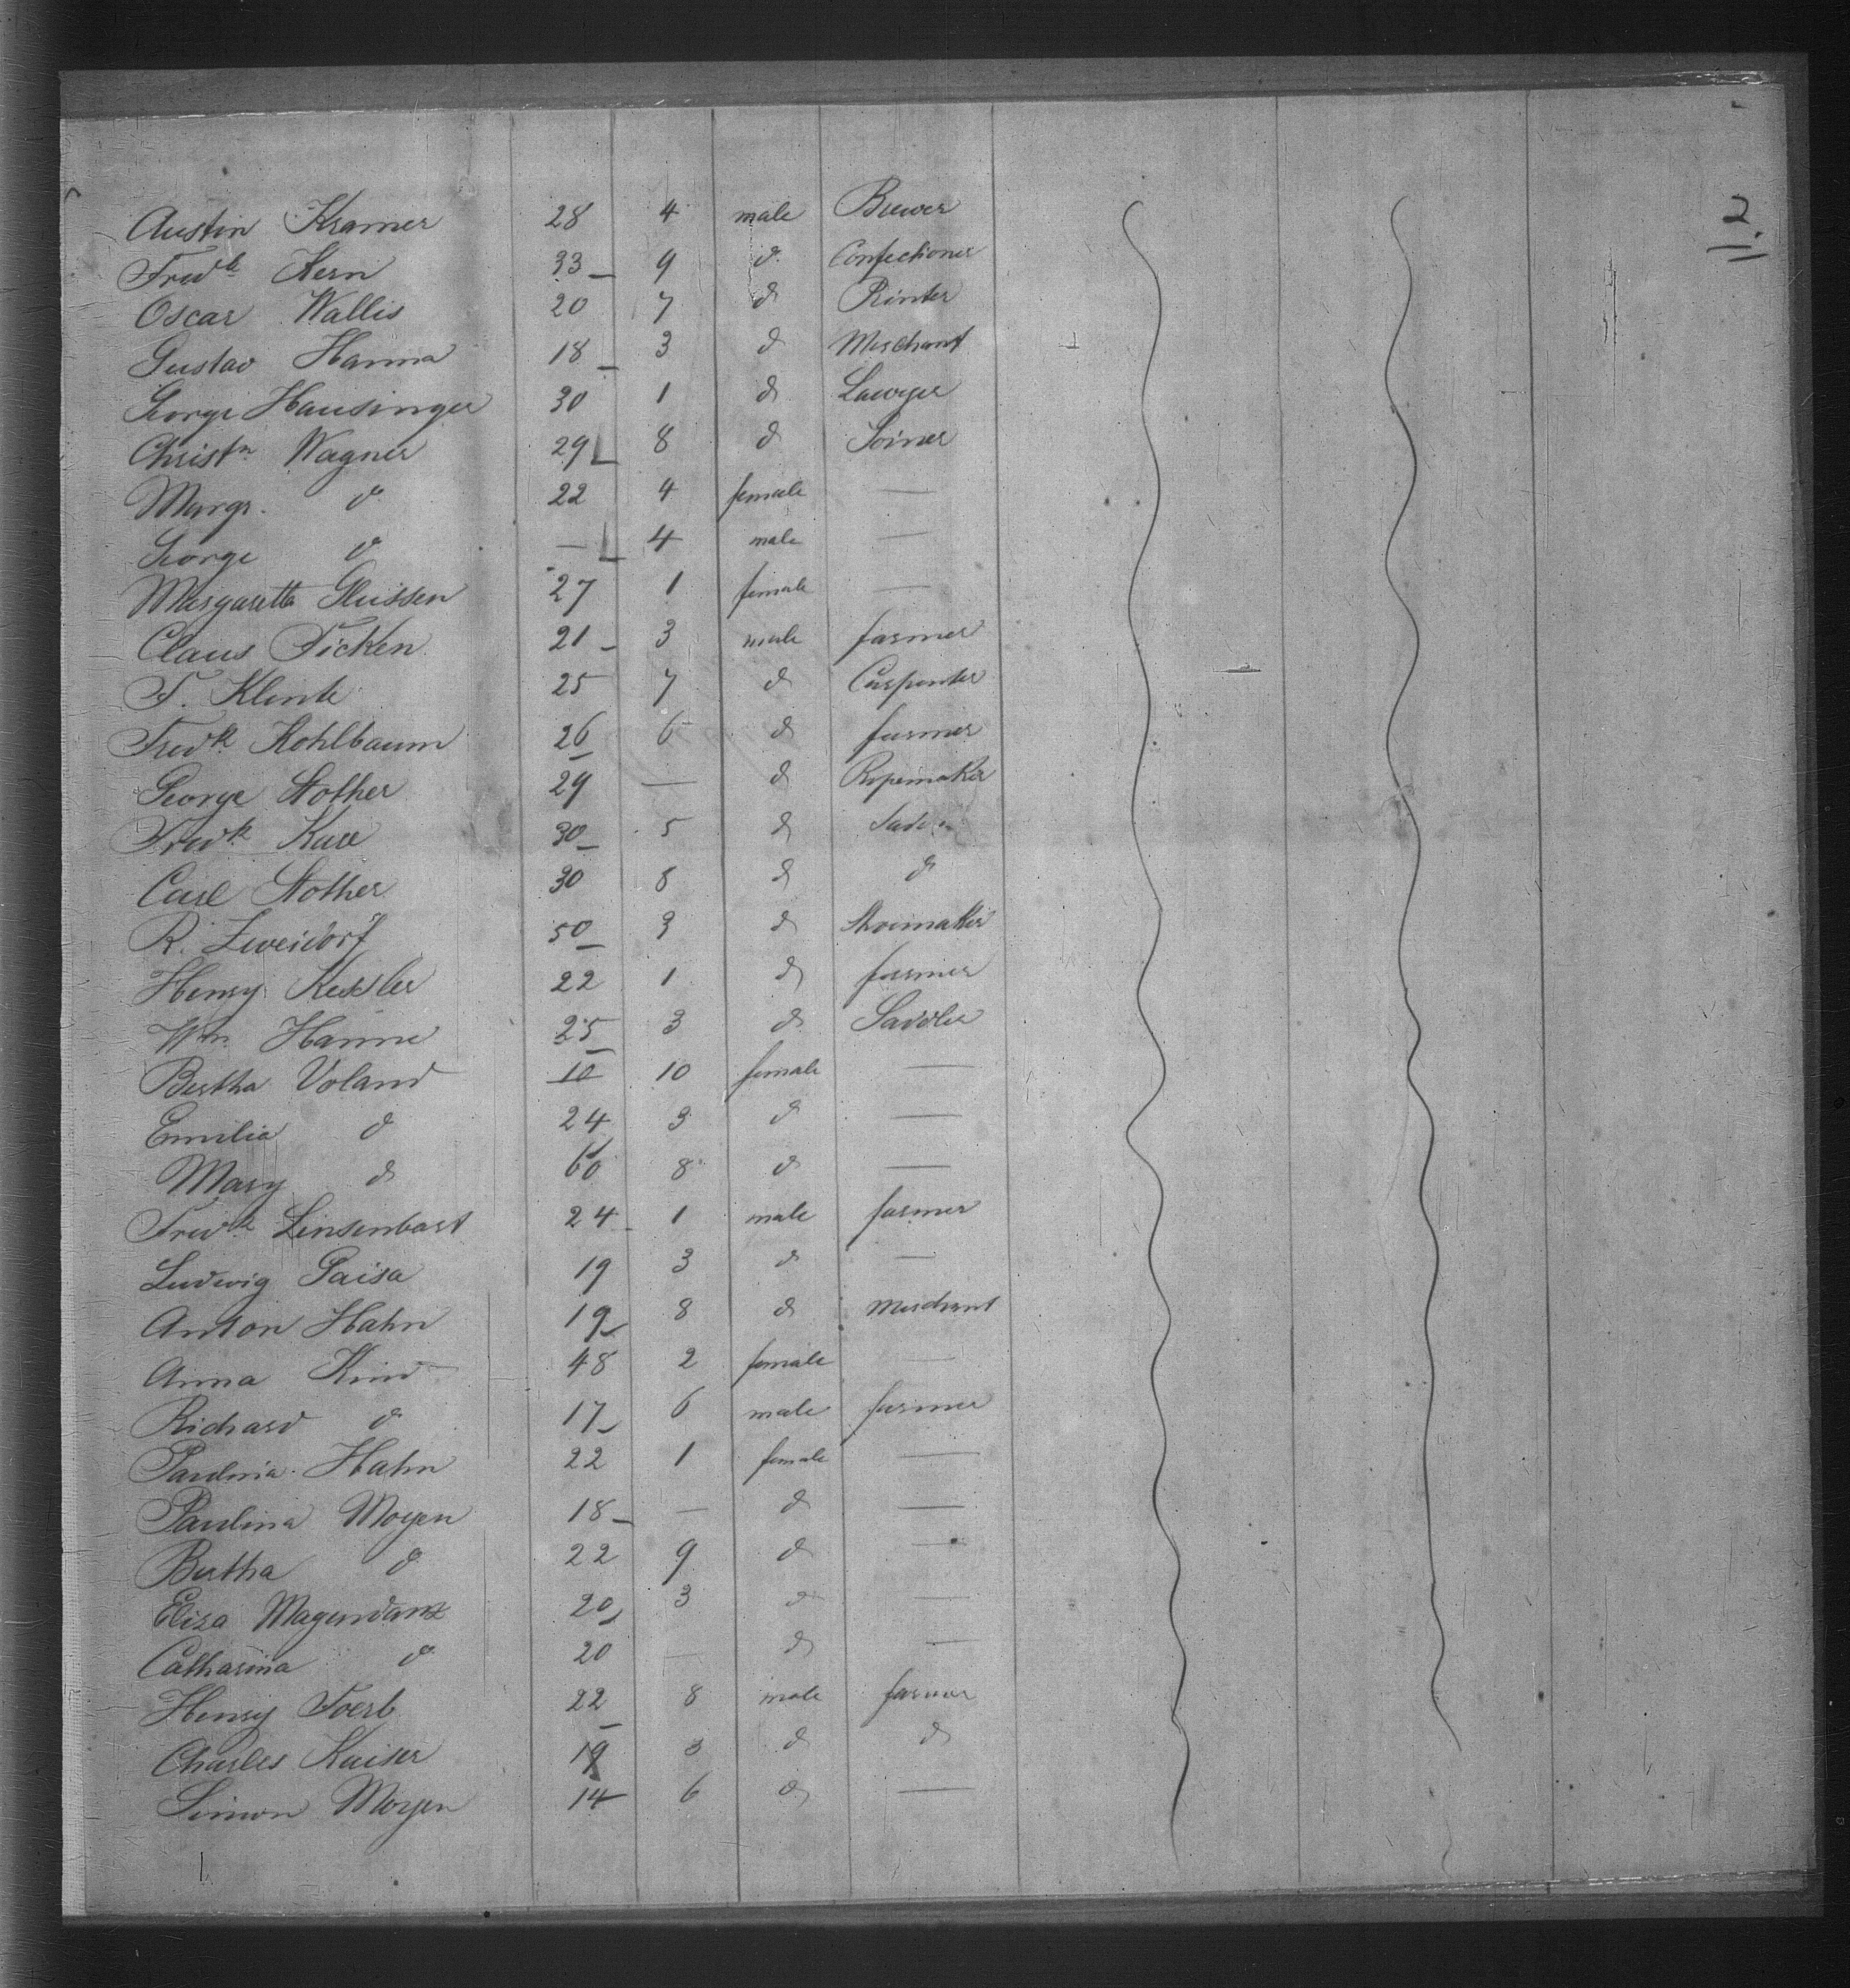 2.
Austin Kramer 28 4 male Brewer
Fredk Kern 33 9 do Confectioner
Oscar Wallis 20 7 do Printer
Gustav Hanna 18 3 do Merchant
George Hausinger 30 1 do Lawyer
Christn Wagner 29 8 do Joiner
Margr. do 22 4 female —
George do — 4 male —
Margaretta Gleissen 27 1 female —
Claus Ficken 21 3 male farmer
F. Klenk 25 7 do Carpenter
Fredk Kohlbaum 26 6 do farmer
George Nother 29 — do Ropemaker
Fredk 30 5 do
Carl Nother 30 8 do do
R. Zweidorf 50 3 do Shoemaker
Henry Kessler 22 1 do farmer
Wm. Hanne 25 3 do Saddler
Bertha Voland 10 10 female —
Emilia do 24 3 do —
Mary do 60 8 do —
Fredk Linsenbart 24 1 male farmer
Ludwig Paisa 19 3 do —
Anton Hahn 19 8 do Merchant
Anna Kind 48 2 female —
Richard do 17 6 male farmer
Paulina Hahn 22 1 female —
Paulina Moyen 18 — do —
Bertha do 22 9 do —
Eliza Magendanz 20 3 do —
Catharina do 20 — do —
Henry Foerb 22 8 male farmer
Charles Kaiser 19 3 do do
Simon Moyen 14 6 do —